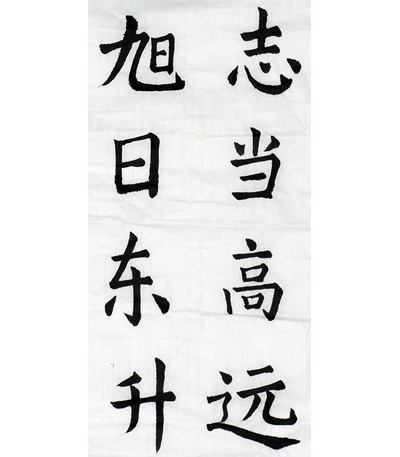 志当高远
旭日东升